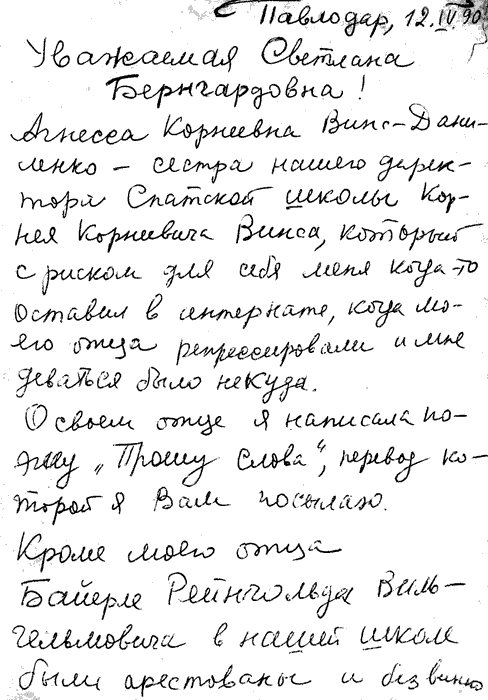 Павлодар, 12.IV.90
Уважаемая Светлана
Бернгардовна!
Агнесса Корнеевна Винс-Дани-
ленко – сестра нашего дирек-
тора Спатской школы Кор-
нея Корнеевича Винса, который
с риском для себя меня когда-то
оставил в интернате, когда мо-
его отца репрессировали и мне
деваться было некуда.
О своем отце я написала по-
эму „Прошу слова“, перевод ко-
торой я Вам посылаю.
Кроме моего отца
Байерле Рейнгольда Виль-
гельмовича в нашей школе
были арестованы и безвинно